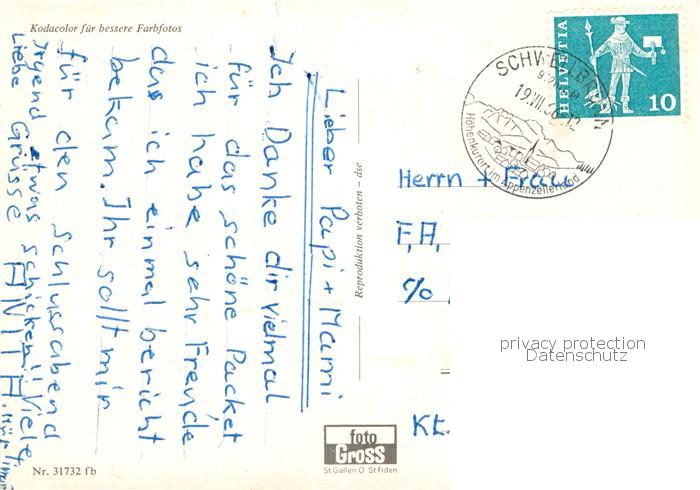 Kodacolor für bessere Farbfotos
Lieber Papi + Mammi
Ich Danke dir vielmal
für das schöne Packet
ich habe sehr Freude
das ich einmal bericht
bekam. Ihr sollt mir
für den schlussabend
irgend etwas schicken!! Viele
Liebe Grüsse ANITA
Nr. 31732 fb
Reproduktion verboten – dse
foto
Gross
St.Gallen O St.Fiden
HELVETIA
10
19.VII.
Höhenkurort im Appenzellerland
Herrn + Frau
F.A.
c/o
Kt.
privacy protection
Datenschutz